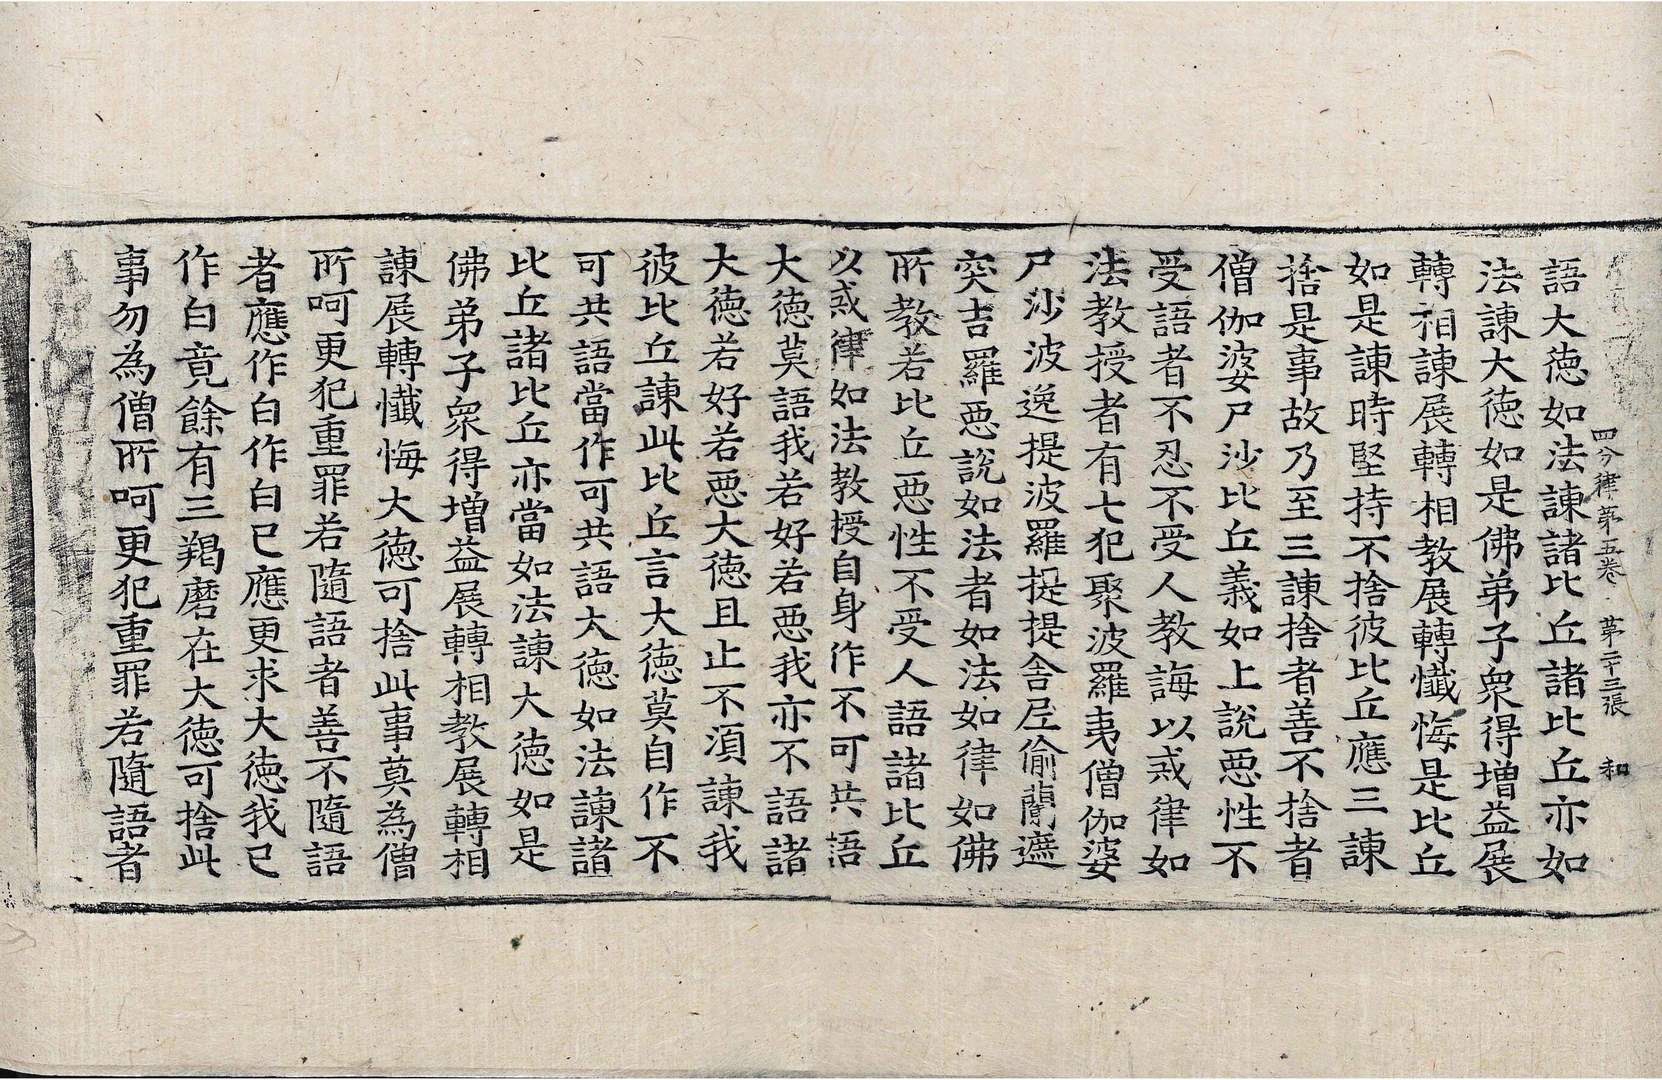 四分律第五卷 第二十三張 和
語大德如法諫諸比丘諸比丘亦如
法諫大德如是佛弟子衆得增益展
轉相諫展轉相教展轉懺悔是比丘
如是諫時堅持不捨彼比丘應三諫
捨是事故乃至三諫捨者善不捨者
僧伽婆尸沙比丘義如上說惡性不
受語者不忍不受人教誨以戒律如
法教授者有七犯聚波羅夷僧伽婆
尸沙波逸提波羅提提舍尼偷蘭遮
突吉羅惡說如法者如法如律如佛
所教若比丘惡性不受人語諸比丘
以戒律如法教授自身作不可共語
大德莫語我若好若惡我亦不語諸
大德若好若惡大德且止不須諫我
彼比丘諫此比丘言大德莫自作不
可共語當作可共語大德如法諫諸
比丘諸比丘亦當如法諫大德如是
佛弟子衆得增益展轉相教展轉相
諫展轉懺悔大德可捨此事莫為僧
所呵更犯重罪若隨語者善不隨語
者應作白作白已應更求大德我已
作白竟餘有三羯磨在大德可捨此
事勿為僧所呵更犯重罪若隨語者